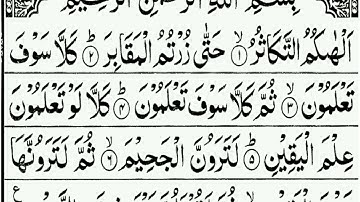 بِسْمِ اللّٰهِ الرَّحْمٰنِ الرَّحِيْمِ
اَلْهٰىكُمُ التَّكَاثُرُ ﴿۱﴾ حَتّٰى زُرْتُمُ الْمَقَابِرَ ﴿۲﴾ كَلَّا سَوْفَ
تَعْلَمُوْنَ ﴿۳﴾ ثُمَّ كَلَّا سَوْفَ تَعْلَمُوْنَ ﴿۴﴾ كَلَّا لَوْ تَعْلَمُوْنَ
عِلْمَ الْيَقِيْنِ ﴿۵﴾ لَتَرَوُنَّ الْجَحِيْمَ ﴿۶﴾ ثُمَّ لَتَرَوُنَّهَا